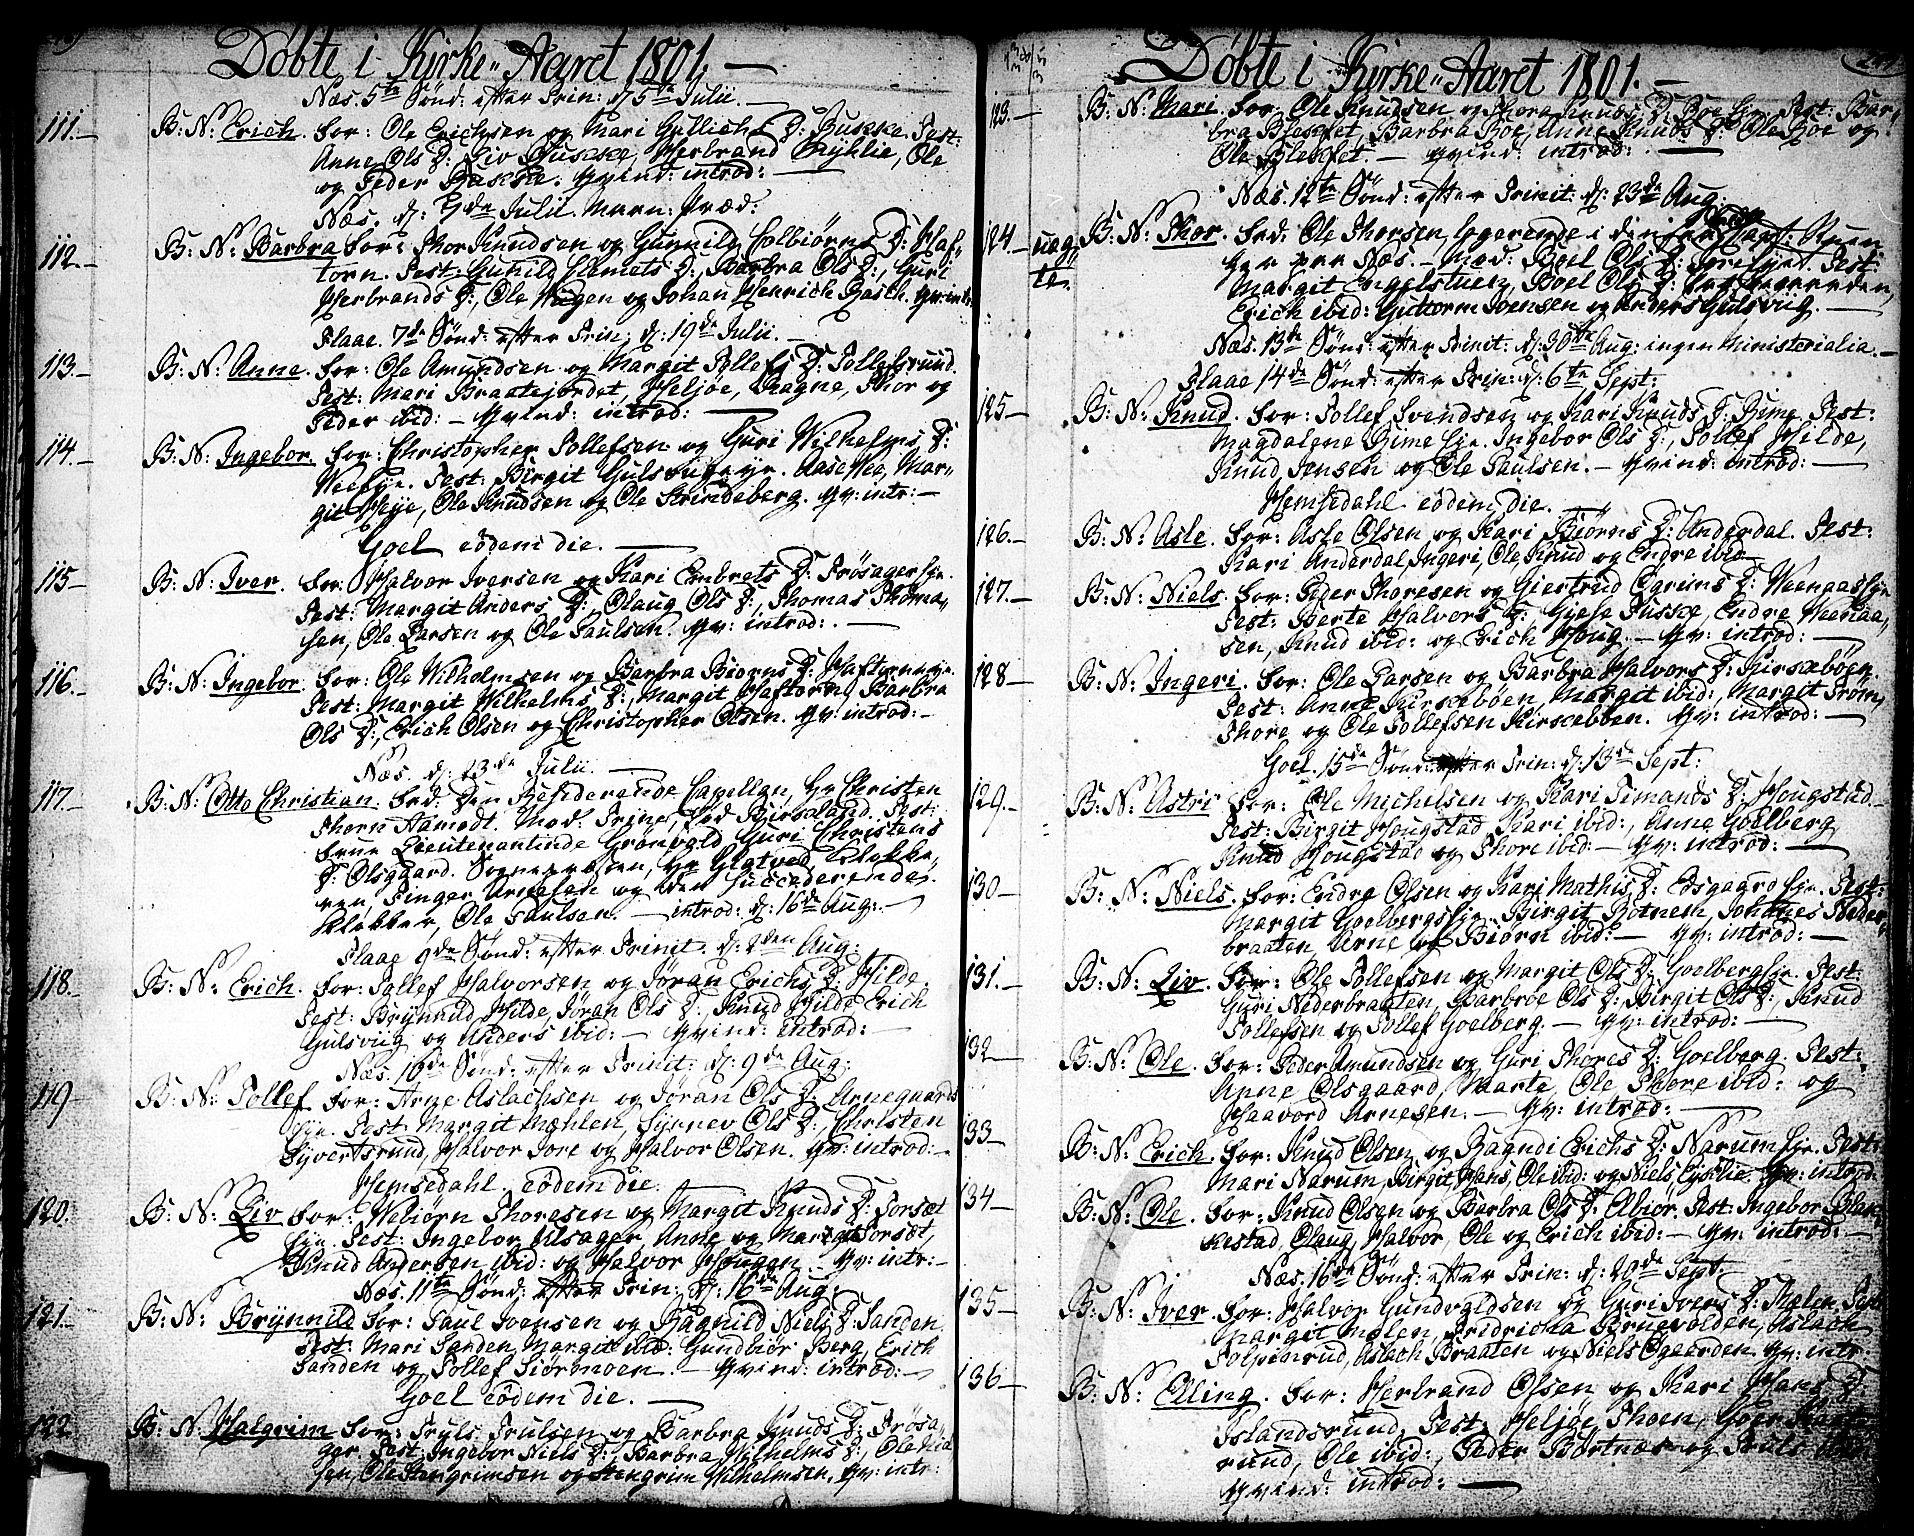 Döbte i Kyrke-Aaret 1801.
Næs. 5te Sönd: efter Trin: d: 5te Julii.
111. B: N: Erich. For: Ole Erichsen og Mari Gullichs D: Buskke. Test:
Anne Ols D: Liv Buskke, Herbrand Myhlie, Ole
og Peder Buskke. Qvind: introd:
Næs. d: 9de Julii Marn: Præd:
112. B: N: Barbra For: Thor Knudsen og Gunnild Colbiörns D: Haf-
torn. Test: Gunild Clemets D:, Barbra Ols D:, Guri
Herbrands D:, Ole Viigen og Johan Henrich Basch. Qv: int:
Flaae. 7de Sönd: efter Trin: d: 19de Julii.
113. B: N: Anne. For: Ole Amundsen og Margit Tollefs D: Tollefsrud.
Test: Mari Braatejordet, Heljöe, Ragne, Thor og
Peder ibid: - Qvind: introd:
114. B: N: Ingebor. For: Christopher Tollefsen og Guri Wilhelms D:
Test: Birgit Gulsvig Aase Mar-
git Ole Knudsen og Ole Strindeberg. Qv: intr:
Goel eödem die.
115 B: N: Iver. For: Halvor Iversen og Kari Embrets D: Trösager
Test: Margit Anders D:, Olaug Ols D:, Thomas Thoma-
sen, Ole Larsen og Ole Paulsen. Qv: introd:
116. B: N: Ingebor. For: Ole Wilhelmsen og Barbra Biörns D: Haftorn
Test: Margit Wilhelms D:, Margit Haftorn, Barbra
Ols D:, Erich Olsen og Christopher Olsen. Qv: introd:
Næs. d: 23de Julii.
117. B: N: Otto Christian. Fad: Den Residerende Capellan, Hr Christen
Thorn Aamodt. Mod: Trine, föd Test:
Frue Lieutenantinde Grönvold, Guri Christens
D: Olsgaard. Hr Klokke-
ren, Arnesen og den Succederende
Klokker, Ole Paulsen. - introd: d: 16de Aug:
Flaae 9de Sönd: efter Trinit: d: 2den Aug:
118. B: N: Erich. For: Tollef Halvorsen og Jöran Erichs D: Hilde.
Test: Brynnild Hilde, Jöran Ols D:, Knud Hilde, Erich
Gulsviig og Anders ibid: - Qvind: introd:
Næs. 10de Sönd: efter Trinit: d: 9de Aug:
119 B: N: Tollef For: Arne Aslachsen og Jöran Ols D: Arnegaards
Test: Margit Mæhlen, Synnev Ols D:, Christen
Syvertsrud, Halvor Tore og Halvor Olsen. Qv: introd:
Hemsedahl. eödem die.
120. B: N: Liv For: Webiörn Thoresen og Margit Knuds D: Torset
Test: Ingebor Ulsager, Anne og Margit Torset,
Knud Andersen ibid: og Halvor Hougen. - Qv: intr:
Næs. 11te Sönd: efter Trin: d: 16de Aug:
121. B: N: Brynnild For: Paul Ivensen og Ragnild Niels D: Sanden.
Test: Mari Sanden, Margit ibid: Gundbiör Berg, Erich
Sanden og Tollef Siörmoen. - Qvind: introd:
Goel eödem die.
122 B: N: Halgrim For: Truls Trulsen og Barbra Knuds D: Trösa-
ger Test: Ingebor Niels D:, Barbra Wilhelms D:, Ole
sen, Ole Stengrimsen og Stengrim Wilhelmsen. Qv: intr:
Döbte i Kirke-Aaret 1801.
123. B: N: Mari. For: Ole Knudsen og Thora Knuds D: Roe Test: Bar-
bra Blekket, Barbra Roe, Anne Knuds D: Ole Roe og
Ole Blekket. - Qvind: introd:
Næs. 12te Sönd: efter Trinit: d: 23de Aug.
124 uæg-
te. B: N: Thor. Fad: Ole Thorsen, logerende i
Næs. - Mod: Boel Ols D: Test:
Margit Engelstuen, Boel Ols D:
Erich ibid: Guttorm Ivensen og Anders Gulsviig.
Næs. 13de Sönd: efter Trinit: d: 30te Aug: ingen Ministerialia.
Flaae 14de Sönd: efter Trin: d: 6te Sept:
125 B: N: Knud. For: Tollef Svendsen og Kari Knuds D: Bime Test:
Magdalene Bime Ingebor Ols D:, Tollef Hilde,
Knud Jensen og Ole Paulsen. - Qvind: introd:
Hemsedahl eödem die.
126. B: N: Asle. For: Asle Olsen og Kari Biörns D: Anderdal. Test:
Kari Anderdal, Ingeri, Ole, Knud og Endre ibid
127. B: N: Niels. For: Peder Thoresen og Giertrud Egrims D:
Test: Berte Halvors D: Endre
sen, Knud ibid: og Erich Houg. - Qv: introd:
128 B: N: Ingeri. For: Ole Larsen og Barbra Halvors D: Kirkeböen.
Test: Anne Kirkeböen, Margit ibid:, Margit Tröm,
Thore og Ole Tollefsen Kirkeböen. Qv: introd:
Goel. 15de Sönd: efter Trin: d: 13de Sept:
129. B: N: Astri For: Ole Michelsen og Kari Simonds D: Hougstad.
Test: Birgit Hougstad, Kari ibid:, Anne Goelberg
Knud Hougstad og Thore ibid: - Qv: introd:
130 B: N: Niels. For: Endre Olsen og Kari Mathis D: Test:
Margit Goelberg Birgit Botnem, Johannes Neder-
braaten Arne og Biörn ibid: - Qv: introd:
131. B: N: Liv. For: Ole Tollefsen og Margit Ols D: Goelberg Test:
Guri Nederbraaten, Barbroe Ols D: Birgit Ols D:, Knud
Tollefsen og Tollef Goelberg. - Qv: introd:
132 B: N: Ole. For: Peder Amundsen og Guri Thores D: Goelberg. Test:
Anne Olsgaard, Marte, Ole Thore ibid: og
Haavord Arnesen. - Qv: introd:
133 B: N: Erich. For: Knud Olsen og Ragndi Erichs D: Narum Test:
Mari Narum, Birgit, Hans, Ole ibid: og Niels Qv: introd
134 B: N: Ole. For: Knud Olsen og Barbra Ols D: Elbiör. Test: Ingebor Blak-
kestad, Olaug, Halvor, Ole og Erich ibid: - Qv: introd:
Næs. 16de Sönd: efter Trin: d: 20de Sept
135 B: N: Iver For: Halvor Gundvoldsen og Guri Ivers D: Mælen Test
Margit Mælen, Fridricha Brunvolden, Aslach
Aslech Braaten og Niels Qv: intr:
136 B: N: Elling. For: Herbrand Olsen og Kari Hans D:
Islandsrud, Test: Heljöe Thoen,
rud, Ole ibid:, Peder Börtnæs og Truls
Qvind: introd: